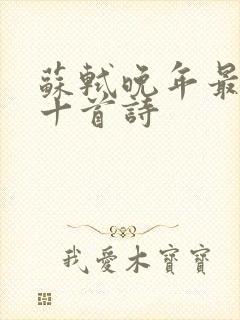 蘇軾晚年最
十首詩
我愛木寶寶